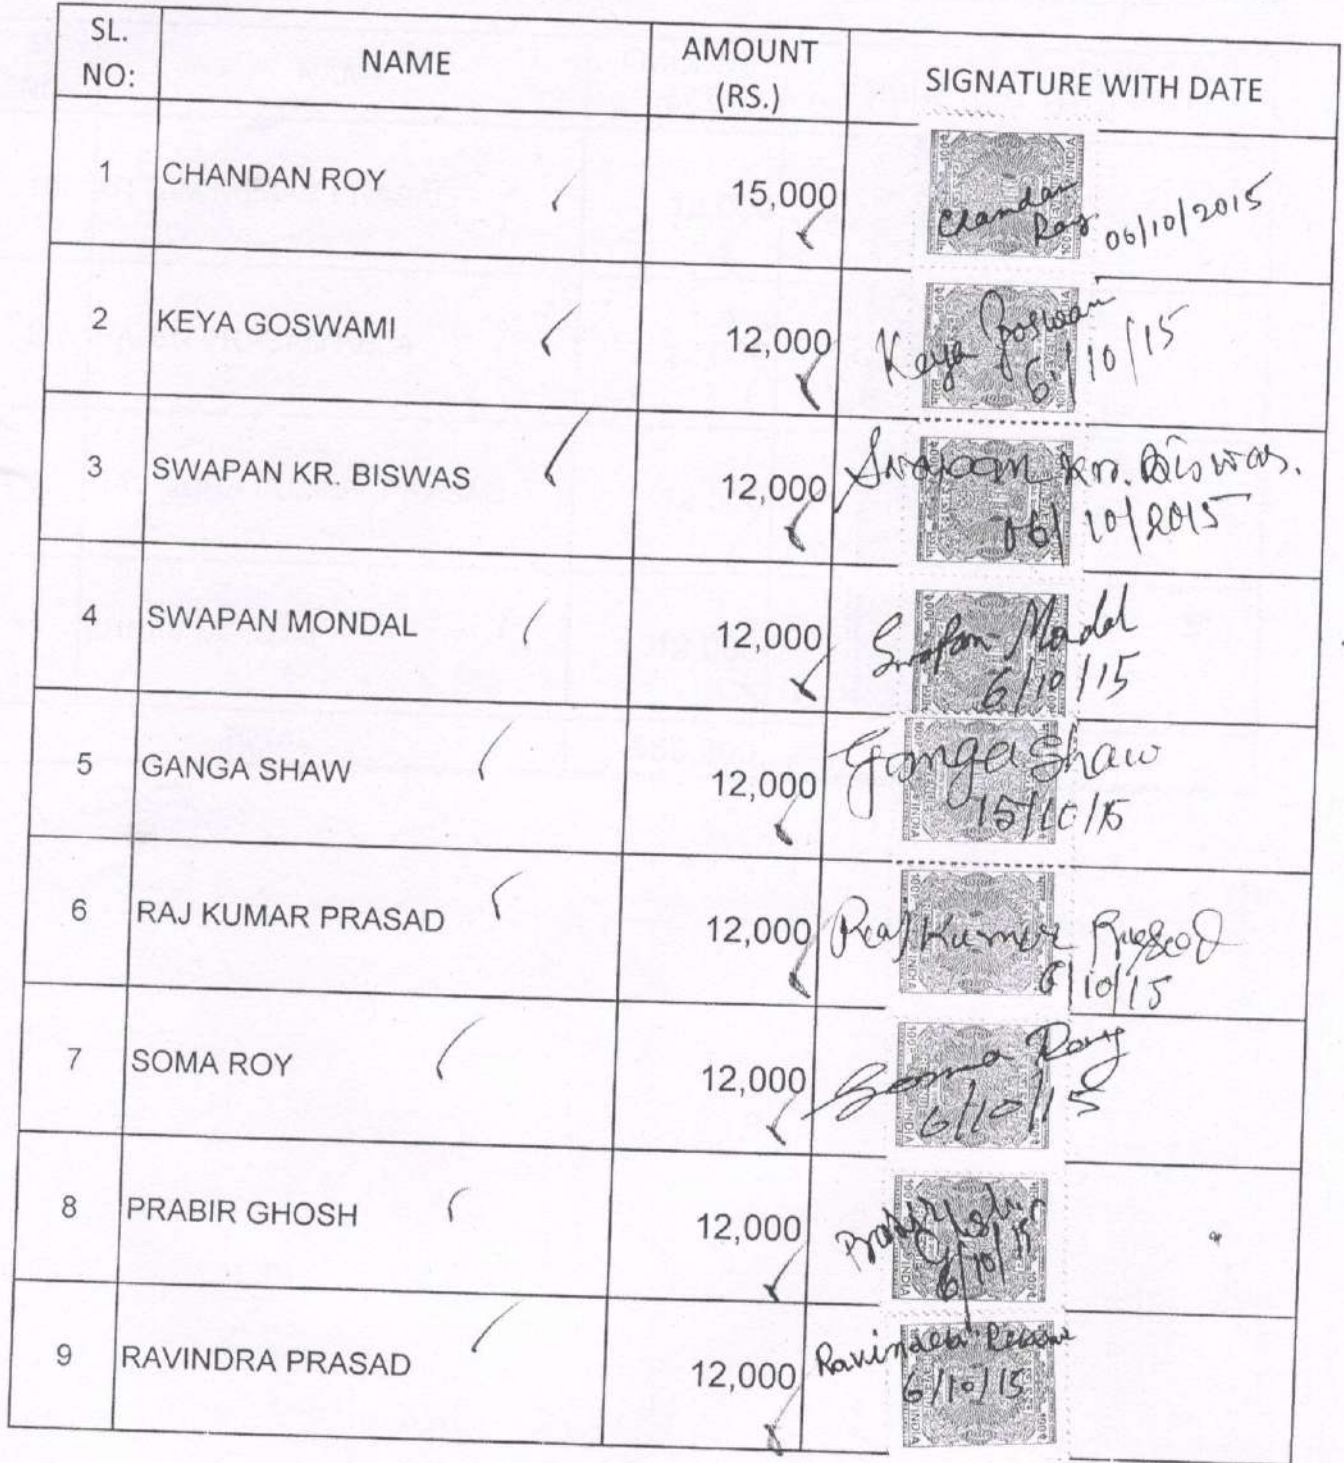 SL. NO:
NAME
AMOUNT (RS.)
SIGNATURE WITH DATE
1 CHANDAN ROY 15,000 Chandan
Roy 06/10/2015
2 KEYA GOSWAMI 12,000 Keya Goswami
6/10/15
3 SWAPAN KR. BISWAS 12,000 Swapan Kr. Biswas.
06/10/2015
4 SWAPAN MONDAL 12,000 Swapan Mondal
6/10/15
5 GANGA SHAW 12,000 Ganga Shaw
15/10/15
6 RAJ KUMAR PRASAD 12,000 Raj Kumar Prasad
6/10/15
7 SOMA ROY 12,000 Soma Roy
6/10/15
8 PRABIR GHOSH 12,000 Prabir Ghosh
6/10/15
9 RAVINDRA PRASAD 12,000 Ravindra
6/10/15
INDIA
INDIA
INDIA
INDIA
INDIA
INDIA